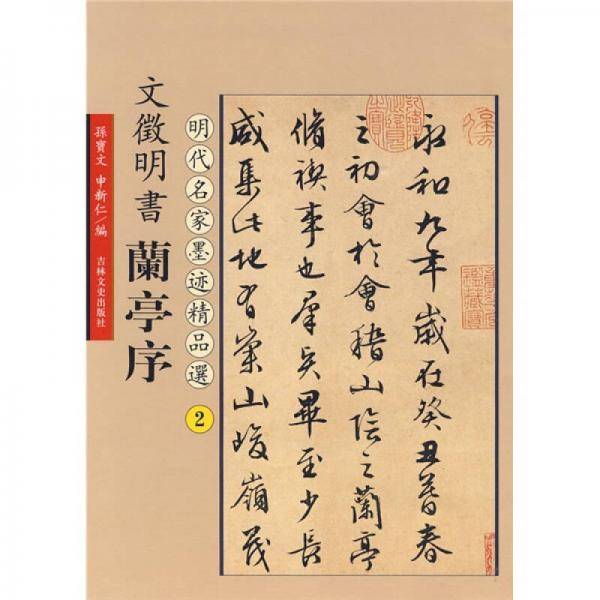 永和九年歲在癸丑暮春
之初會於會稽山陰之蘭亭
脩禊事也羣賢畢至少長
咸集此地有崇山峻嶺茂
明代名家墨迹精品選
2
文徵明書 蘭亭序
孫寶文 申新仁／編
吉林文史出版社